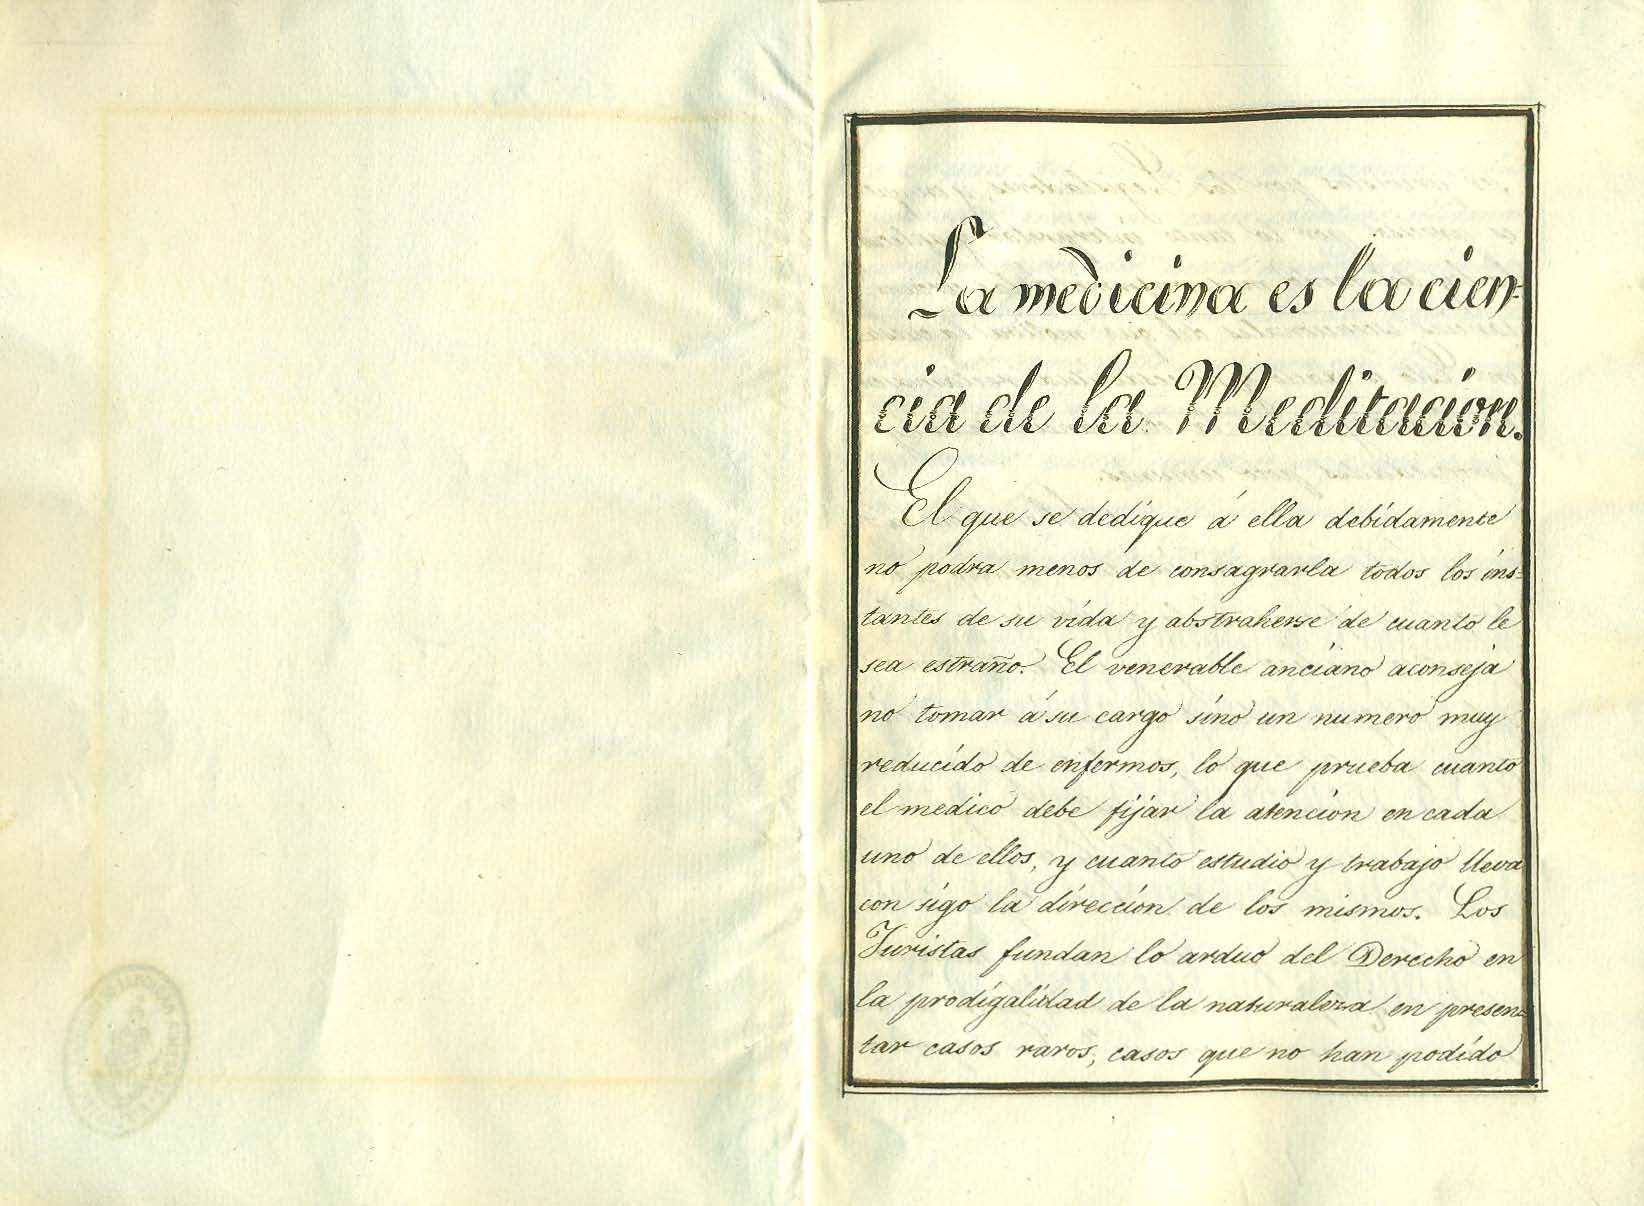 La medicina es la cien-
cia de la Meditacion.
El que se dedique á ella debidamente
no podra menos de consagrarla todos los ins=
tantes de su vida y abstraherse de cuanto le
sea estraño. El venerable anciano aconseja
no tomar á su cargo sino un numero muy
reducido de enfermos, lo que prueba cuanto
el medico debe fijar la atencion en cada
uno de ellos, y cuanto estudio y trabajo lleva
con sigo la direccion de los mismos. Los
Juristas fundan lo arduo del Derecho en
la prodigalidad de la naturaleza en presen=
tar casos raros, casos que no han podido